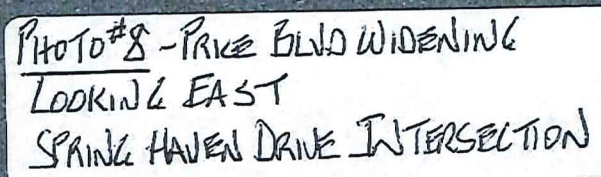 PHOTO #8 - PRICE BLVD WIDENING
LOOKING EAST
SPRING HAVEN DRIVE INTERSECTION